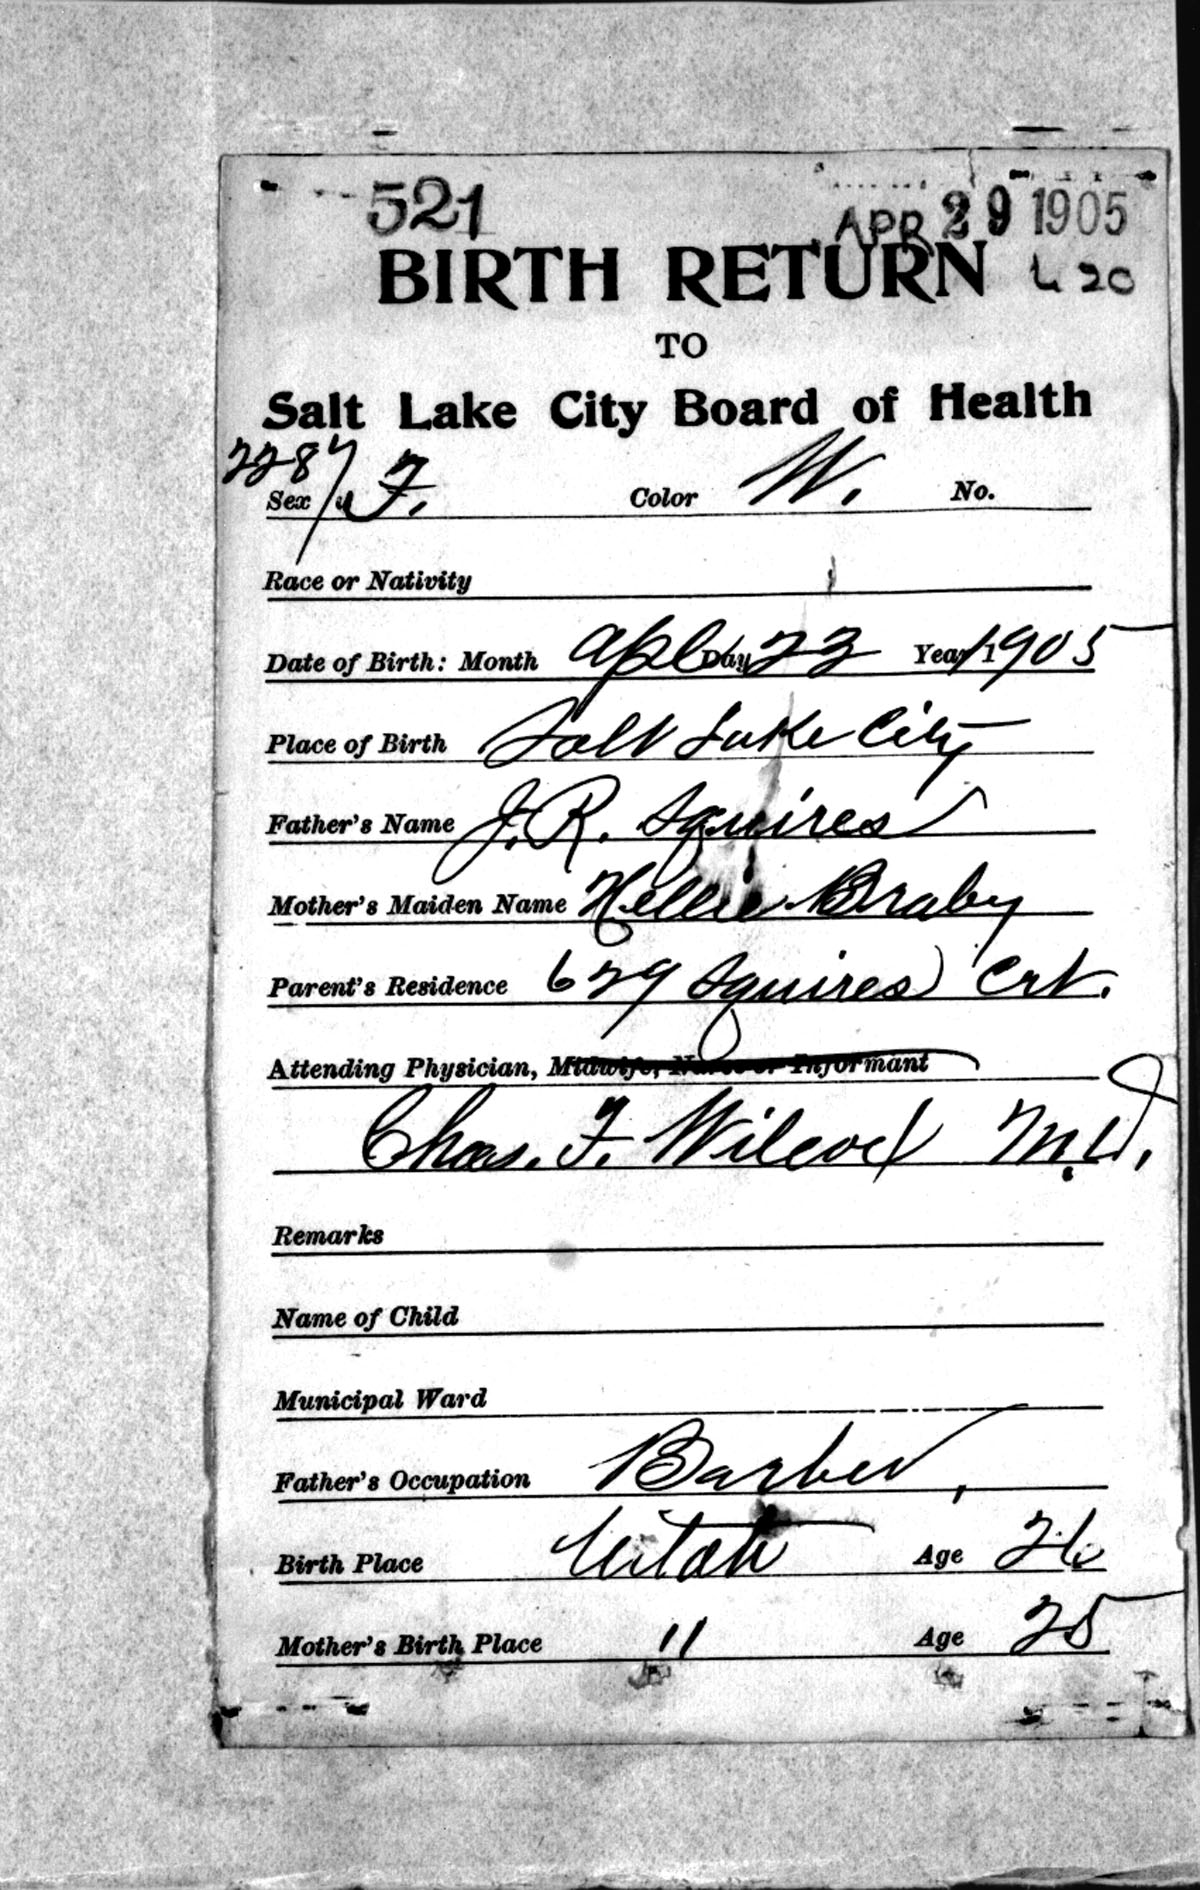 521 APR 29 1905
BIRTH RETURN
TO
Salt Lake City Board of Health
2287
Sex F. Color W. No.
Race or Nativity
Date of Birth: Month Apl Day 23 Year 1905
Place of Birth Salt Lake City
Father's Name J. R. Squires
Mother's Maiden Name Nellie Braby
Parent's Residence 629 Squires Crt.
Attending Physician, Midwife, Nurse or Informant
Chas. F. Wilcox M.D.
Remarks
Name of Child
Municipal Ward
Father's Occupation Barber,
Birth Place Utah Age 26
Mother's Birth Place " Age 25